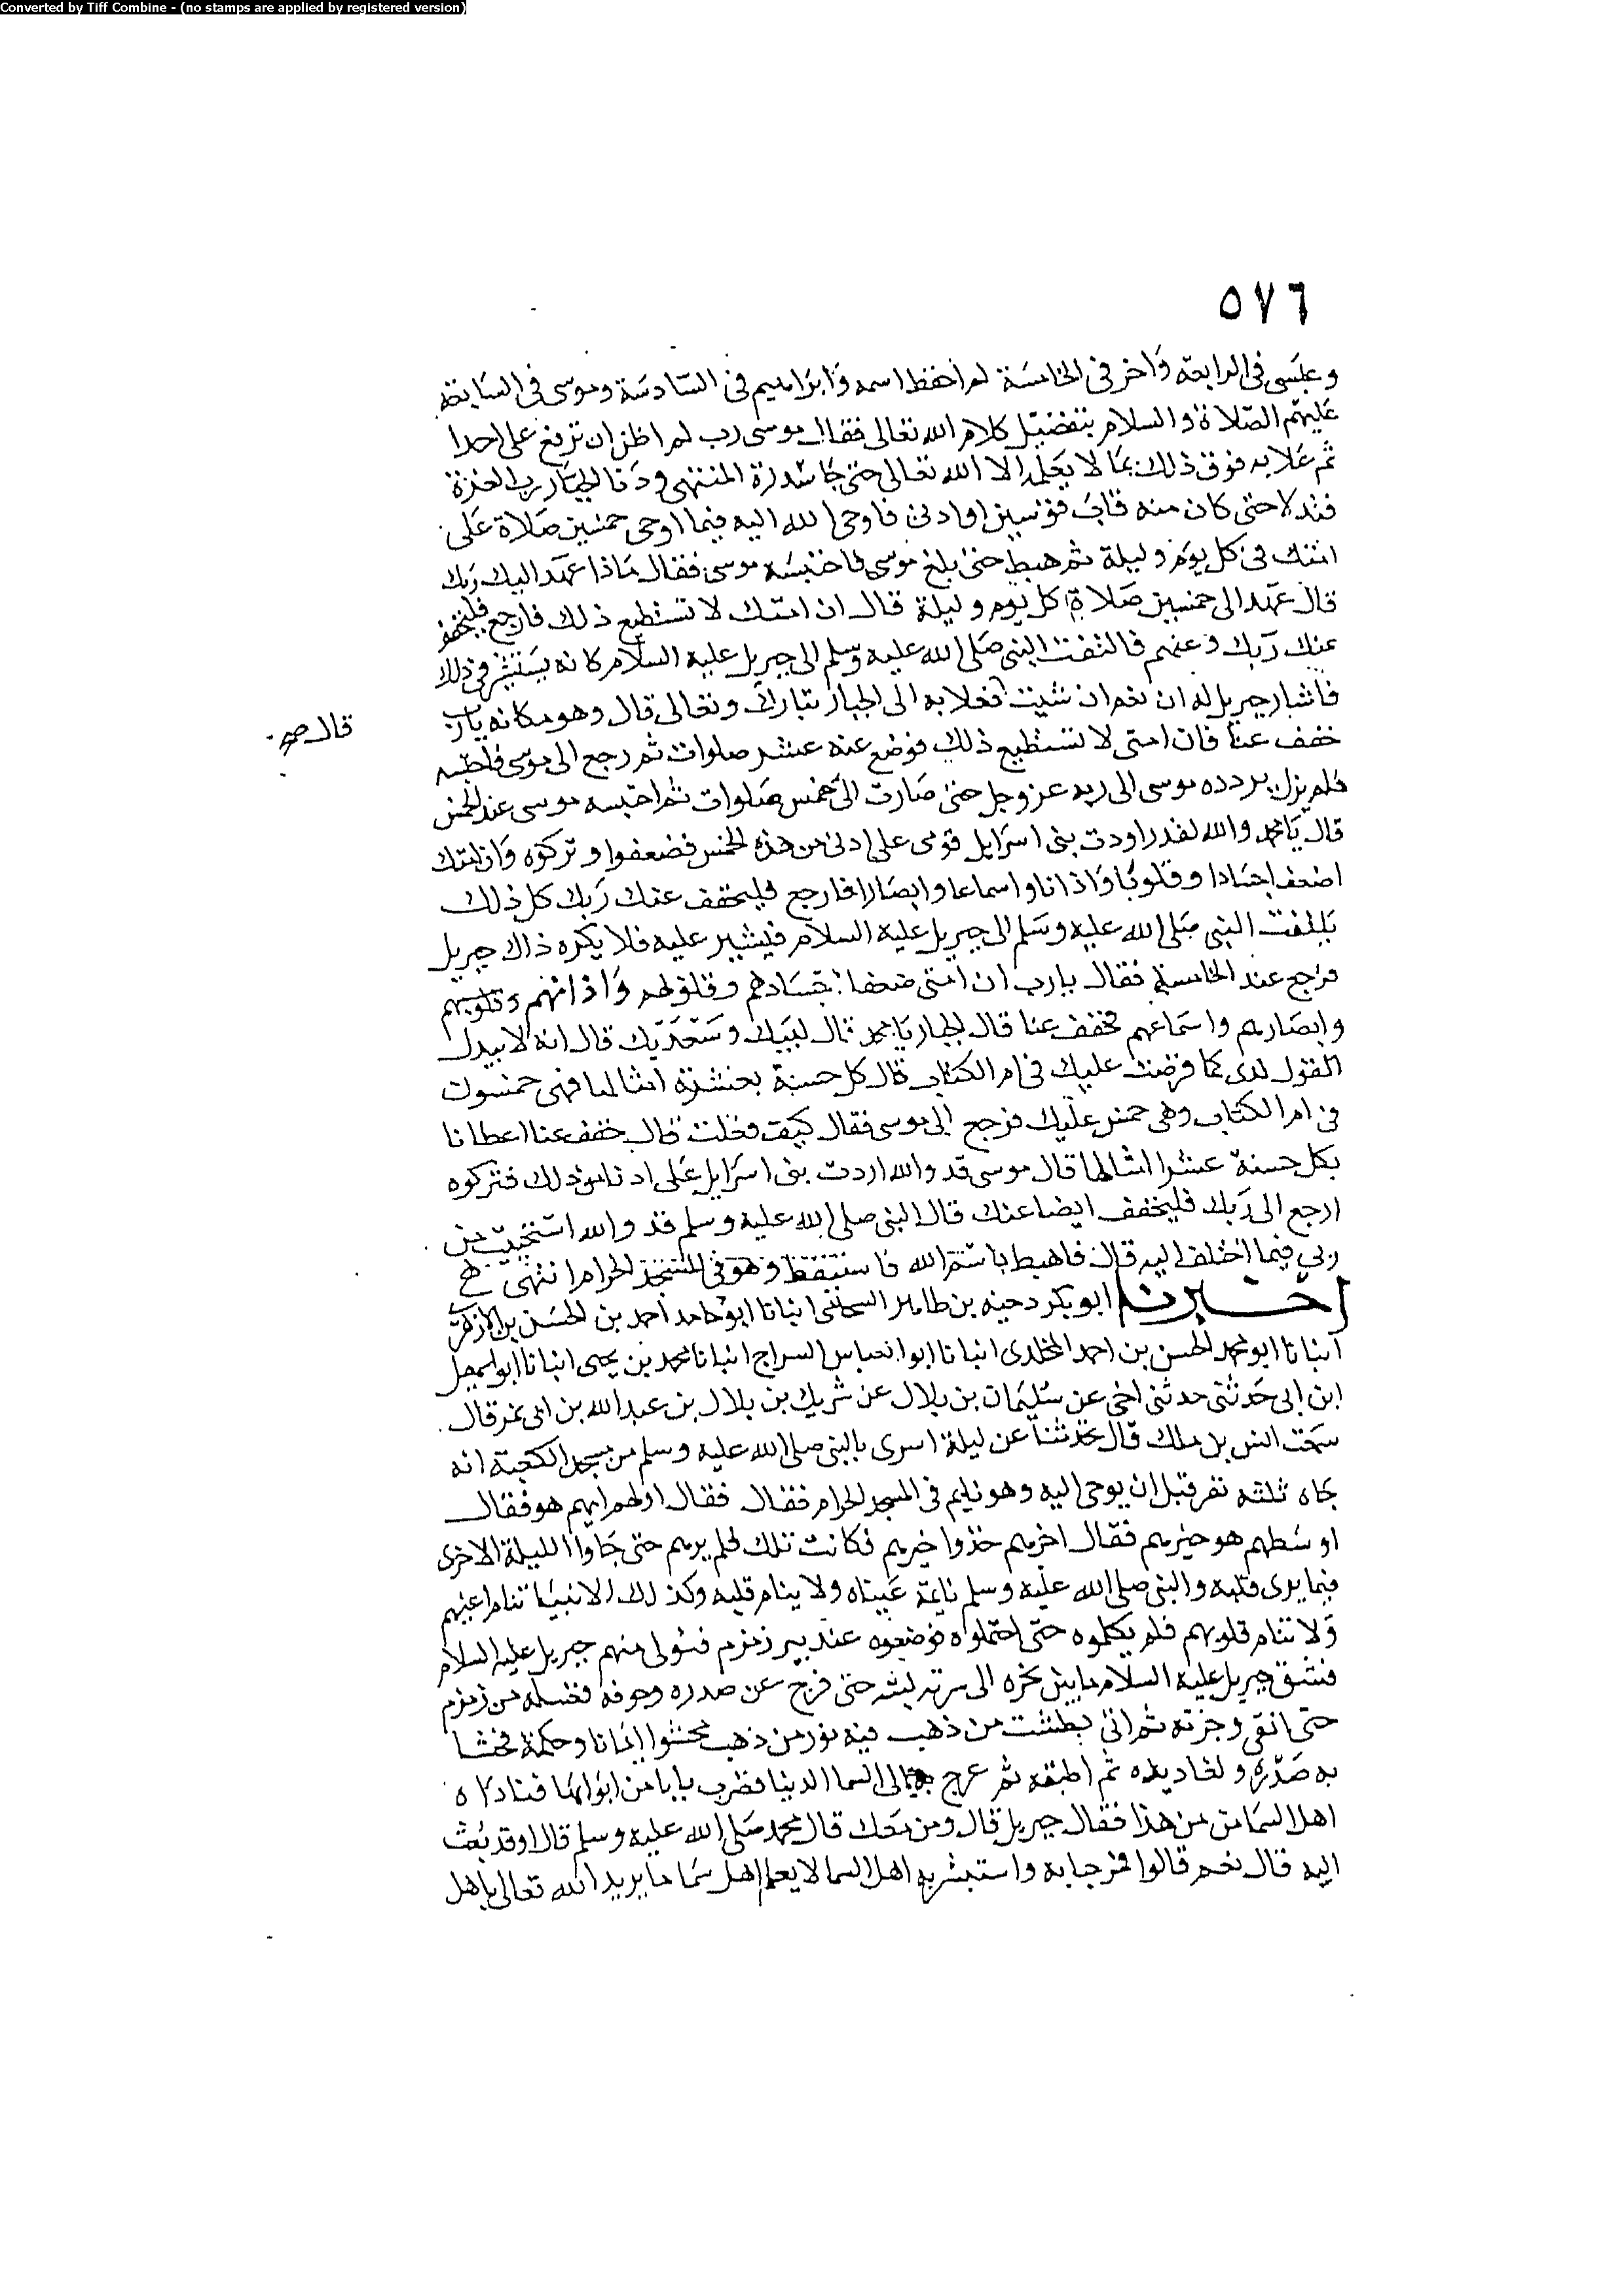 Converted by Tiff Combine - (no stamps are applied by registered version)
٥٧٦
وعيسى فى الرابعة واخر فى الخامسة لم احفظ اسمه وابراهيم فى السادسة وموسى فى السابعة
عليهم الصلاة والسلام بتفضيل كلام الله تعالى فقال موسى رب لم اظن ان ترفع على احدا
ثم علا به فوق ذلك بما لا يعلمه الا الله تعالى حتى جا سدرة المنتهى ودنا الجبار رب العزة
فتدلا حتى كان منه قاب قوسين او ادنى فاوحى الله اليه فيما اوحى خمسين صلاة على
امتك فى كل يوم وليلة ثم هبط حتى بلغ موسى فاحتبسه موسى فقال ماذا عهد اليك ربك
قال عهد الى خمسين صلاة كل يوم وليلة قال ان امتك لا تستطيع ذلك فارجع فليخفف
عنك ربك وعنهم فالتفت النبى صلى الله عليه وسلم الى جبريل عليه السلام كانه يستشيره فى ذلك
فاشار جبريل له ان نعم ان شيت فعلا به الى الجبار تبارك وتعالى قال وهو مكانه يارب
قال صح
خفف عنا فان امتى لا تستطيع ذلك فوضع عنه عشر صلوات ثم رجع الى موسى فاحتبسه
فلم يزل يردده موسى الى ربه عز وجل حتى صارت الى خمس صلوات ثم احتبسه موسى عند الخمس
قال يا محمد والله لقد راودت بنى اسرايل قومى على ادنى من هذه الخمس فضعفوا وتركوه وان امتك
اضعف اجسادا وقلوبا واذانا واسماعا وابصارا فارجع فليخفف عنك ربك كل ذلك
يلتفت النبى صلى الله عليه وسلم الى جبريل عليه السلام فيشير عليه فلا يكره ذاك جبريل
فرجع عند الخامسة فقال يارب ان امتى ضعفا اجسادهم وقلوبهم واذانهم وقلوبهم
وابصارهم واسماعهم فخفف عنا قال الجبار يا محمد قال لبيك وسعديك قال انه لا يبدل
القول لدى كما فرضت عليك فى ام الكتاب قال كل حسنة بعشرة امثالها فهى خمسون
فى ام الكتاب وهى خمس عليك فرجع الى موسى فقال كيف فعلت قال خفف عنا اعطانا
بكل حسنة عشر امثالها قال موسى قد والله اردت بنى اسرايل على ادنا من ذلك فتركوه
ارجع الى ربك فليخفف ايضا عنك قال النبى صلى الله عليه وسلم قد والله استحييت من
ربي فيما اختلف اليه قال فاهبط باسم الله فاستيقظ وهو فى المسجد الحرام انتهى
اخبرنا ابو بكر وجيه بن طاهر السحامى انبانا ابو حامد احمد بن الحسن بن الازهرى
انبانا ابو محمد الحسن بن احمد المخلدى انبانا ابو العباس السراج انبانا محمد بن يحيى انبانا ابو اسمعيل
ابن ابى حدثنى حدثنى اخى عن سليمان بن بلال عن شريك بن بلال بن عبد الله بن ابى نمر قال
سمعت انس بن ملك قال حدثنا عن ليلة اسرى بالنبى صلى الله عليه وسلم من مسجد الكعبة انه
جاه ثلثه نفر قبل ان يوحى اليه وهو نايم فى المسجد الحرام فقال فقال اولهم ايهم هو فقال
اوسطهم هو خيرهم فقال اخرهم خذوا خيرهم فكانت تلك فلم يرهم حتى جاوا الليلة الاخرى
فيما يرى قلبه والنبى صلى الله عليه وسلم نايمة عيناه ولا ينام قلبه وكذلك الانبيا تنام اعينهم
ولا تنام قلوبهم فلم يكلموه حتى احتملوه فوضعوه عند بير زمزم فتولى منهم جبريل عليه السلام
فشق جبريل عليه السلام ما بين نحره الى لبته حتى فرج عن صدره وجوفه فغسله من زمزم
حتى انقى وجزته ثم اتى بطشت من ذهب فيه نور من ذهب محشوا ايمانا وحكمة فحشا
به صدره ولغاديده ثم اطبقه ثم عرج به الى السما الدنيا فضرب بابا من ابوابها فناداه
اهل السما من هذا فقال جبريل قال ومن معك قال محمد صلى الله عليه وسلم قال اوقد بعث
اليه قال نعم قالوا فمرحبا به واستبشر به اهل السما لا يعلم اهل سما ما يريد الله تعالى باهل